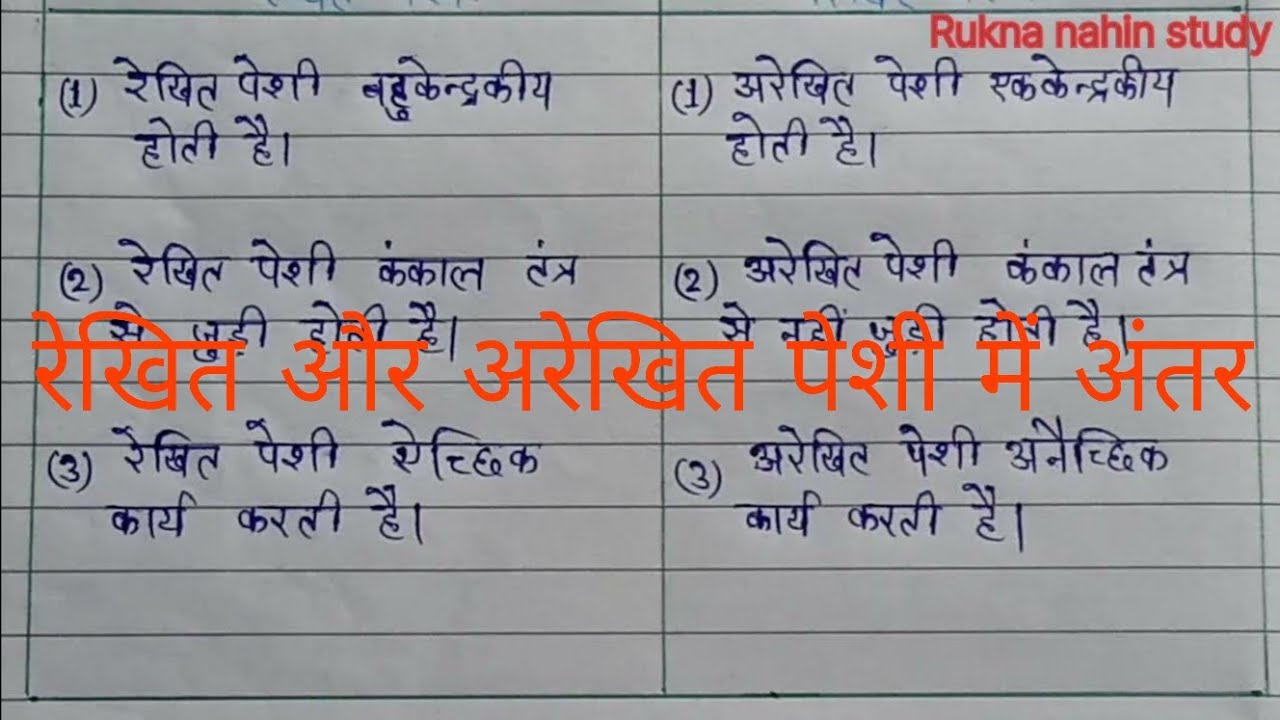 Rukna nahin study
(1) रेखित पेशी बहुकेन्द्रकीय
होती है।
(1) अरेखित पेशी एककेन्द्रकीय
होती है।
(2) रेखित पेशी कंकाल तंत्र
से जुड़ी होती है।
(2) अरेखित पेशी कंकाल तंत्र
से नहीं जुड़ी होती है।
रेखित और अरेखित पेशी में अंतर
(3) रेखित पेशी ऐच्छिक
कार्य करती है।
(3) अरेखित पेशी अनैच्छिक
कार्य करती है।